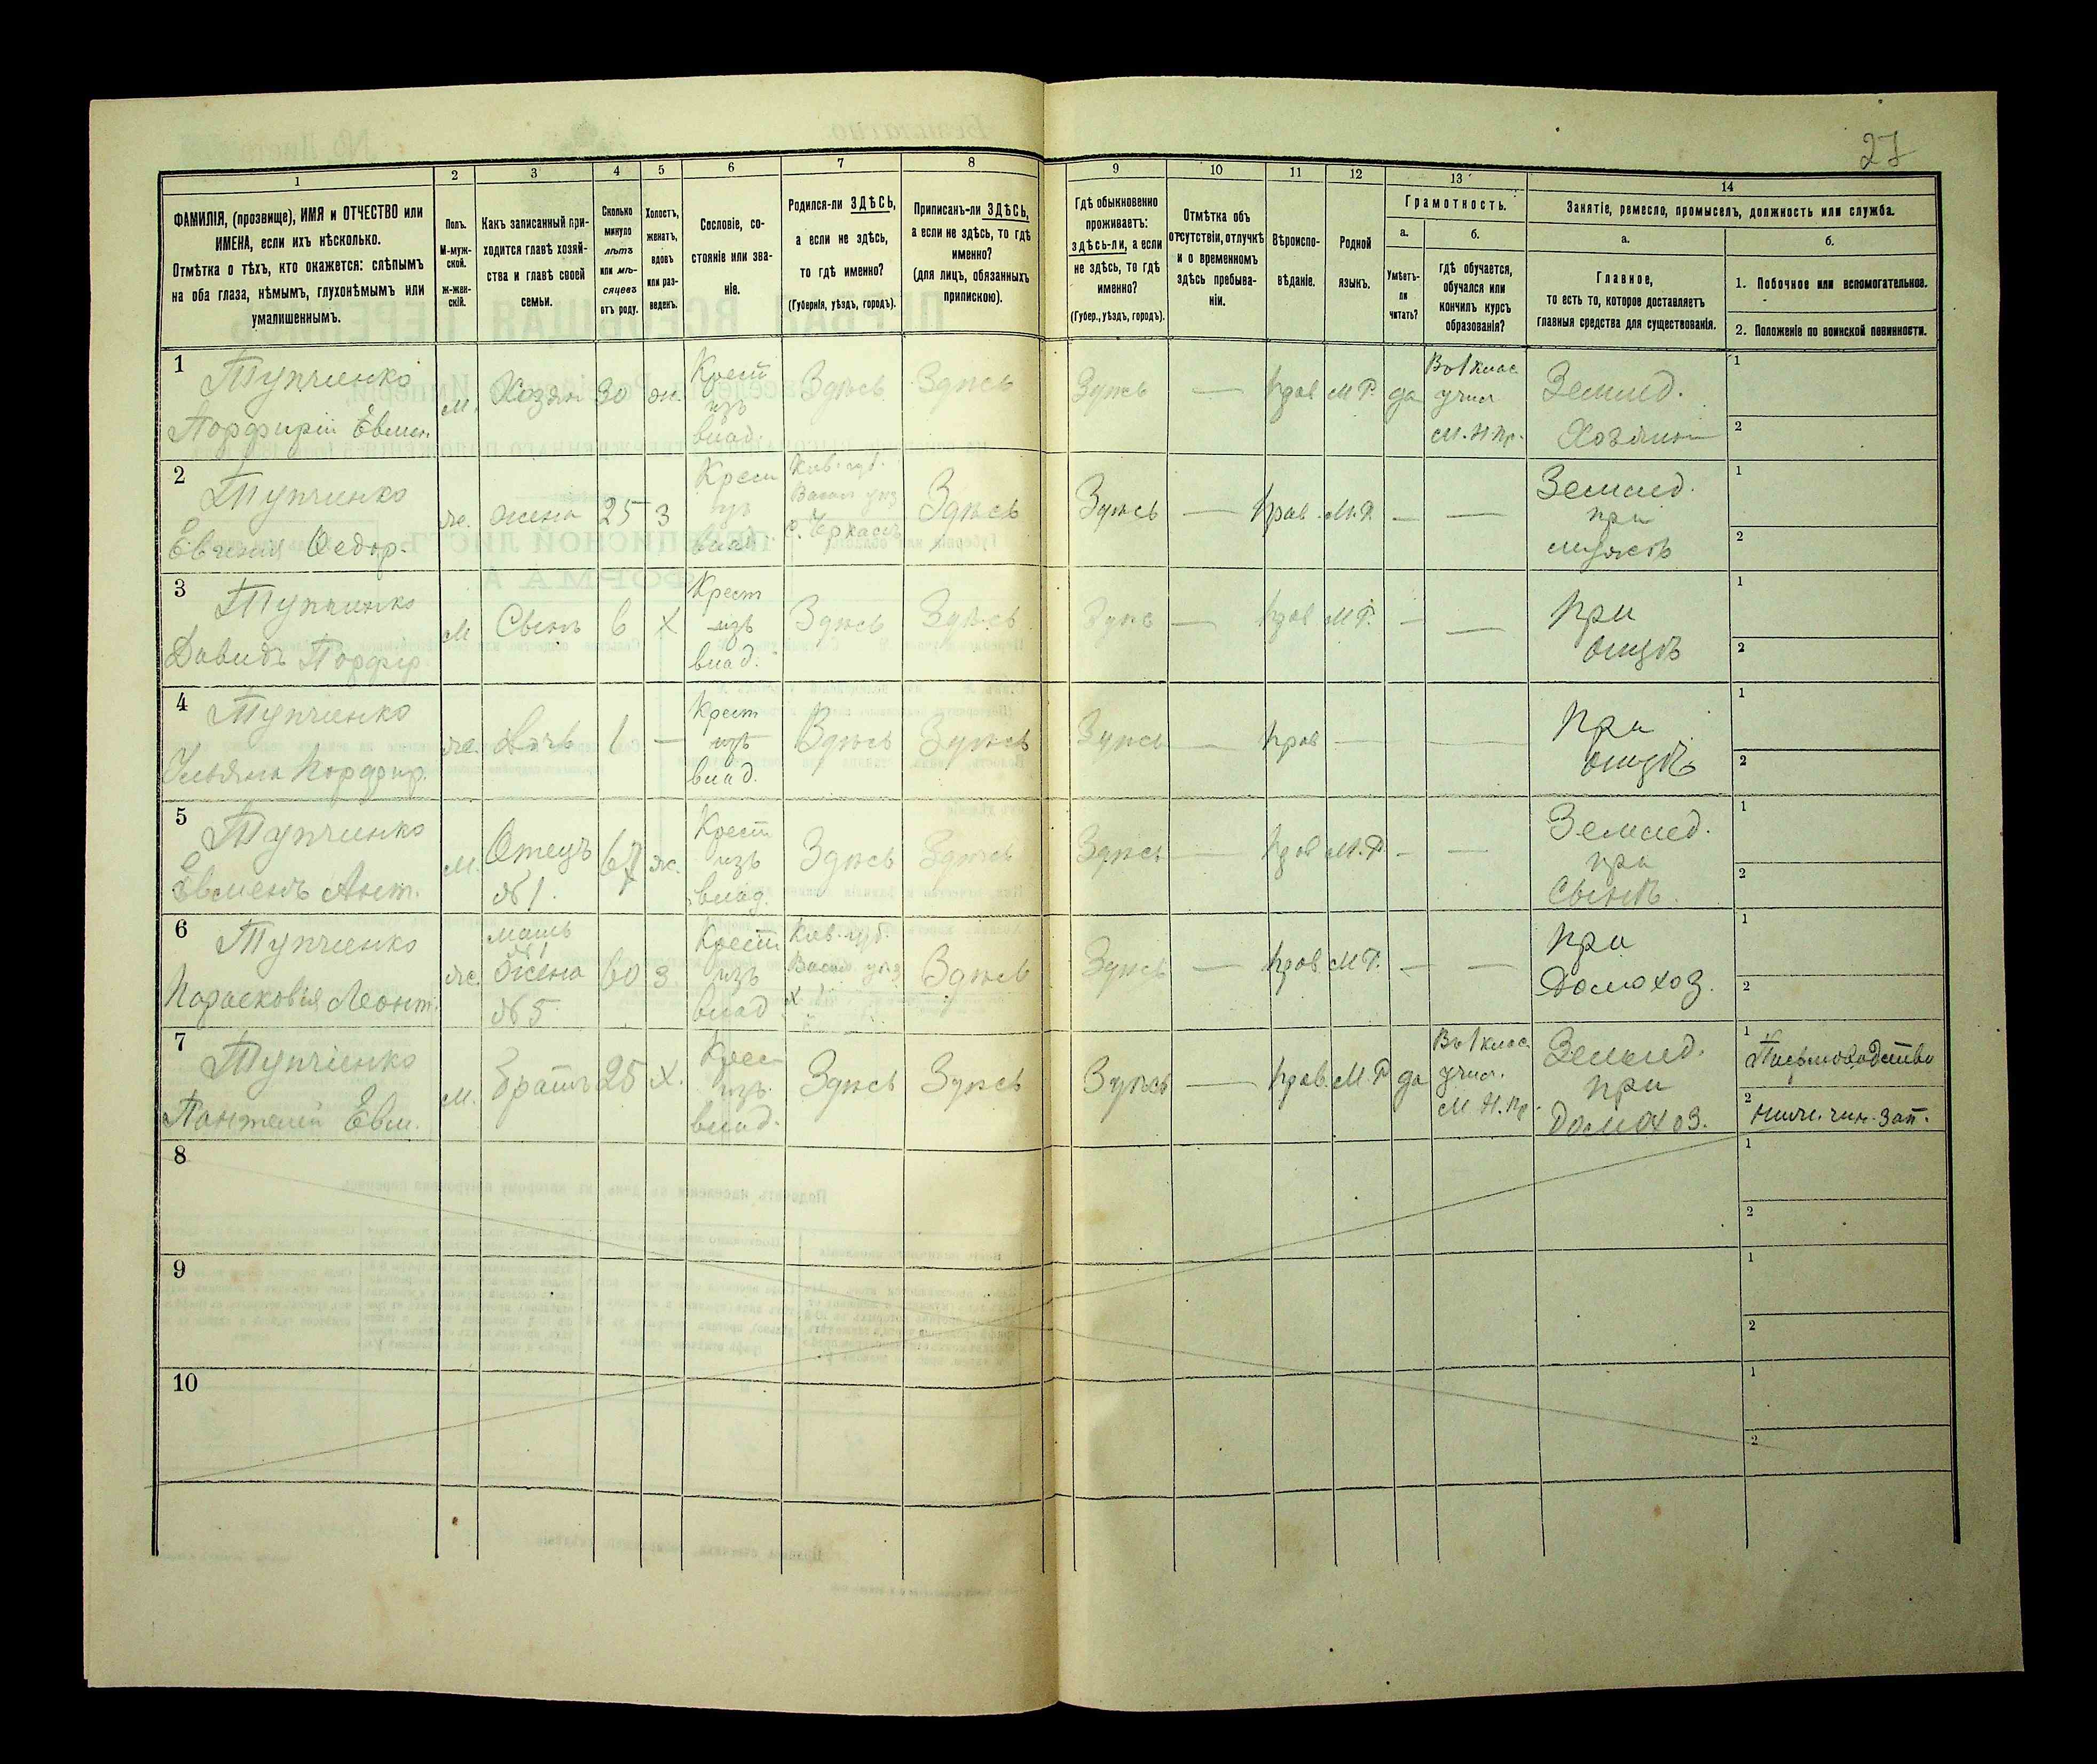 27
1 2 3 4 5 6 7 8 9 10 11 12 13 14
ФАМИЛІЯ, (прозвище), ИМЯ и ОТЧЕСТВО или
ИМЕНА, если ихъ нѣсколько.
Отмѣтка о тѣхъ, кто окажется: слѣпымъ
на оба глаза, нѣмымъ, глухонѣмымъ или
умалишеннымъ.
Полъ.
М-муж-
ской.
ж-жен-
скій.
Какъ записанный при-
ходится главѣ хозяй-
ства и главѣ своей
семьи.
Сколько
минуло
лѣтъ
или мѣ-
сяцевъ
отъ роду.
Холостъ,
женатъ,
вдовъ
или раз-
веденъ.
Сословіе, со-
стояніе или зва-
ніе.
Родился-ли ЗДѢСЬ,
а если не здѣсь,
то гдѣ именно?
(Губернія, уѣздъ, городъ).
Приписанъ-ли ЗДѢСЬ,
а если не здѣсь, то гдѣ
именно?
(для лицъ, обязанныхъ
припискою).
Гдѣ обыкновенно
проживаетъ:
ЗДѢСЬ-ЛИ, а если
не здѣсь, то гдѣ
именно?
(Губер., уѣздъ, городъ).
Отмѣтка объ
отсутствіи, отлучкѣ
и о временномъ
здѣсь пребыва-
ніи.
Вѣроиспо-
вѣданіе.
Родной
языкъ.
Грамотность.
а.
Умѣетъ-
ли
читать?
б.
гдѣ обучается,
обучался или
кончилъ курсъ
образованія?
Занятіе, ремесло, промыселъ, должность или служба.
а.
Главное,
то есть то, которое доставляетъ
главныя средства для существованія.
б.
1. Побочное или вспомогательное.
2. Положеніе по воинской повинности.
1
Тупчіенко
Порфирій Евмен.
м. Хозяин 30 ж.
Крест
изъ
влад.
Здѣсь Здѣсь Здѣсь — прав М Р. да
Во 1 клас.
учил
М. Н. Пр.
Землед.
Хозяин
1
2
2
Тупчиенко
Евгения Федор.
же. жена 25 з
Крест
из
влад.
Киев. губ.
Васил уез
с. Черкасъ
Здѣсь Здѣсь — прав. М. Р. — —
Землед.
при
мужѣ
1
2
3
Тупчиенко
Давидъ Порфир.
м Сынъ 6 х
Крест
изъ
влад.
Здѣсь Здѣсь Здѣс — прав М Р. — —
при
отцѣ
1
2
4
Тупчіенко
Ульяна Порфир.
же. Дочь 1 —
Крест
изъ
влад.
Здѣсь Здѣсь Здѣсь — прав — — —
при
отцѣ
1
2
5
Тупчиенко
Евменъ Ант.
м. Отецъ
№ 1.
67 ж.
Крест
изъ
влад.
Здѣсь Здѣсь Здѣсь — прав М. Р — —
Землед.
при
Сынѣ.
1
2
6
Тупчіенко
Парасковья Леонт.
же.
мать
№ 1
жена
№ 5
60 з.
Крест
изъ
влад
Киев. губ.
Васил уезд
Здѣсь Здѣсь — прав. М Р. — —
при
Домохоз.
1
2
7
Тупчіенко
Пантелей Евм.
м. братъ 25 х.
Крес
изъ.
влад.
Здѣсь Здѣсь Здѣсь — прав. М. Р да
Во 1 клас.
учил.
М. Н. Пр.
Землед.
при
Домохоз.
1 Писмоводство
2 нижн. чин. зап.
8
1
2
9
1
2
10
1
2